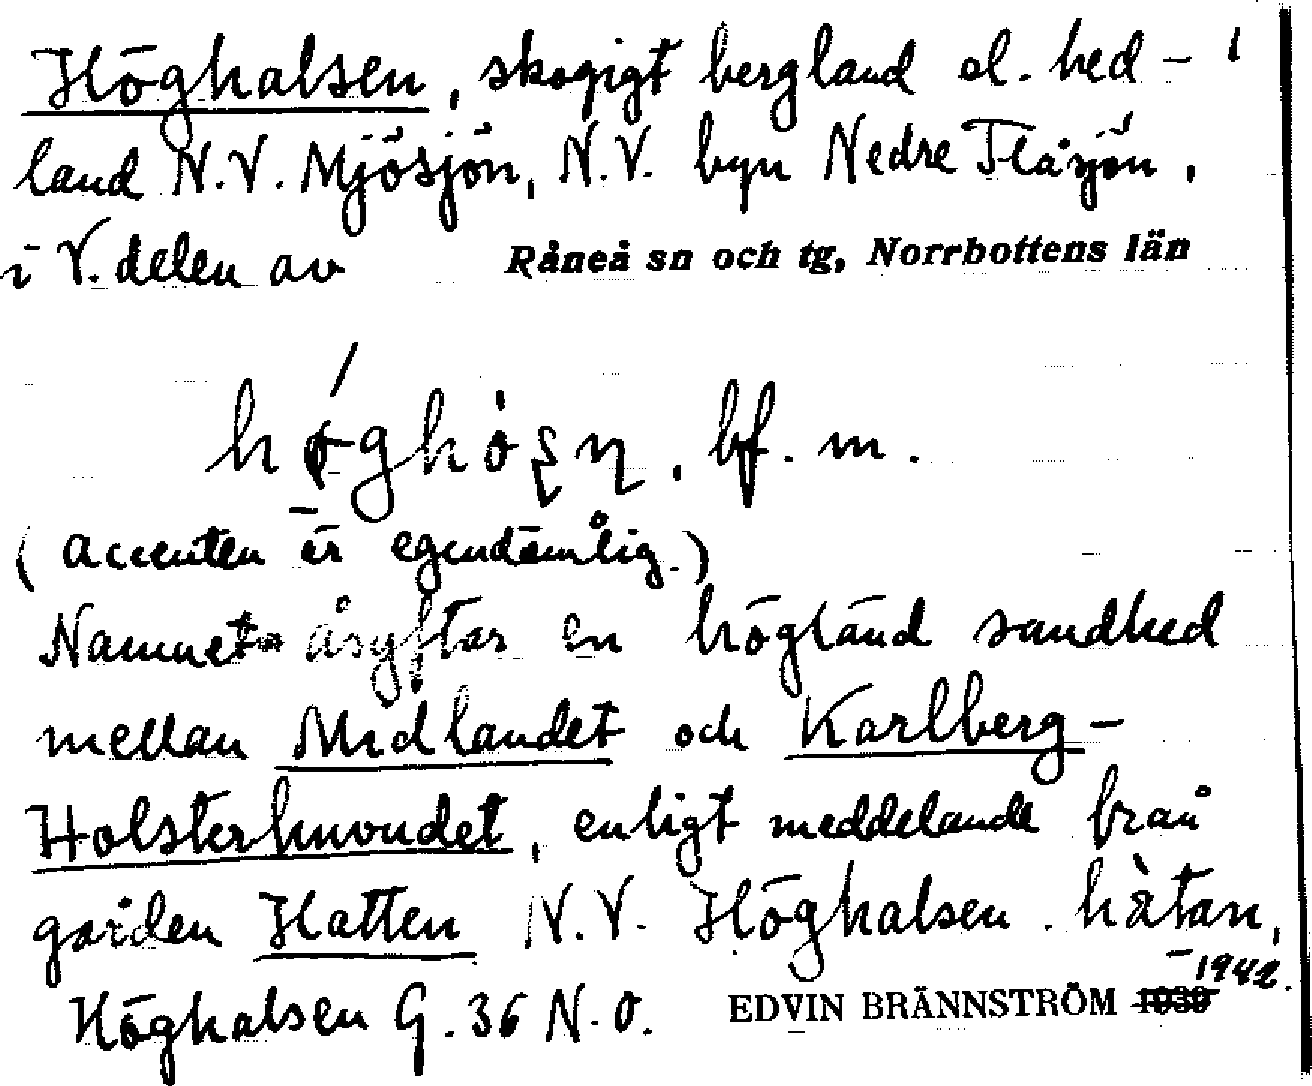 Höghalsen, skogigt bergland el. hed-
land N.V. Mjösjön, N.V. byn Nedre Flåsjön,
i V. delen av Råneå sn och tg, Norrbottens län
bf. m.
(accenten är egendomlig.)
Namnet åsyftar en högländ sandhed
mellan Midlandet och Karlberg-
Holsterhuvudet, enligt meddelande från
gården Hatten N.V. Höghalsen. håtan,
Höghalsen G. 36 N.O. EDVIN BRÄNNSTRÖM 1939 1942.